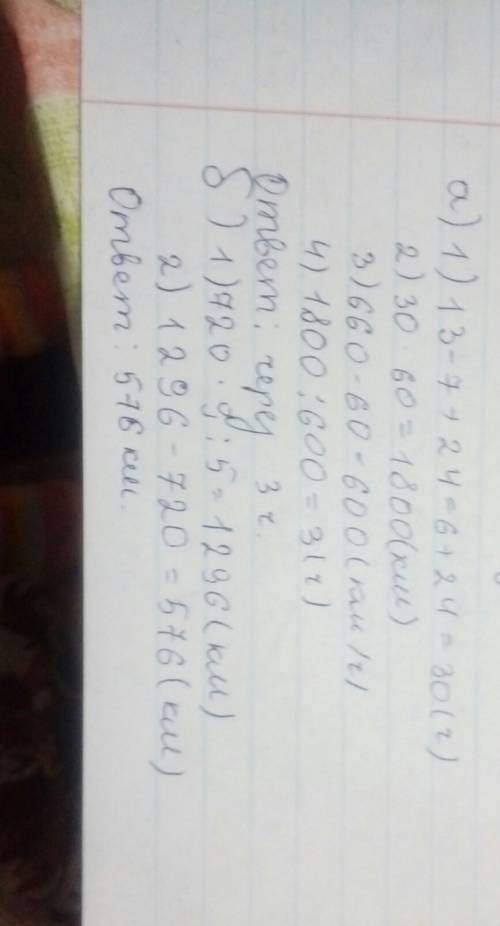 а) 1) 13 - 7 + 24 = 6 + 24 = 30 (ч)
2) 30 · 60 = 1800 (км)
3) 660 - 60 = 600 (км/ч)
4) 1800 : 600 = 3 (ч)
Ответ: через 3 ч.
б) 1) 720 · 9 : 5 = 1296 (км)
2) 1296 - 720 = 576 (км)
Ответ: 576 км.